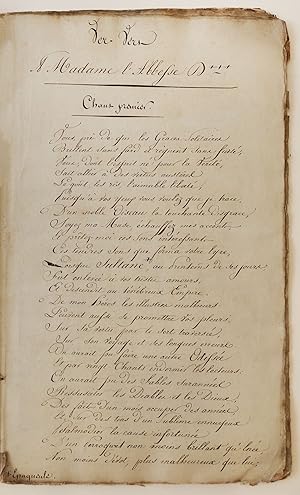 Ver-Vert
A Madame l'Abbesse D***
Chant premier.
Vous près de qui les Graces solitaires
Brillent sans fard et règnent sans fierté;
Vous, dont l'esprit né pour la Vérité,
Sait allier à des vertus austères
Le goût, les ris, l'aimable liberté,
Puisqu'à vos yeux vous voulez que je trace,
D'un noble Oiseau la touchante disgrace,
Soyez ma Muse, échauffez mes accents,
Et prêtez-moi ces sons intéressants
Ces tendres sons que forma votre lyre,
Lorsque Sultane au printems de ses jours
Fut enlevée à vos tristes amours,
Et descendit au ténébreux Empire.
De mon Héros les illustres malheurs
Peuvent aussi se promettre vos pleurs.
Sur sa vertu par le sort traversée
Sur son voyage et ses longues erreurs
On aurait pu faire une autre Odissée
Et par vingt Chants endormir les lecteurs.
On aurait pu des Fables surannées
Ressusciter les Diables et les Dieux,
Des faits d'un mois occuper des années
Et sur des tons d'un sublime ennuyeux
Psalmodier la cause infortunée
D'un Perroquet non moins brillant qu'Enée
Non moins dévot, plus malheureux que lui;